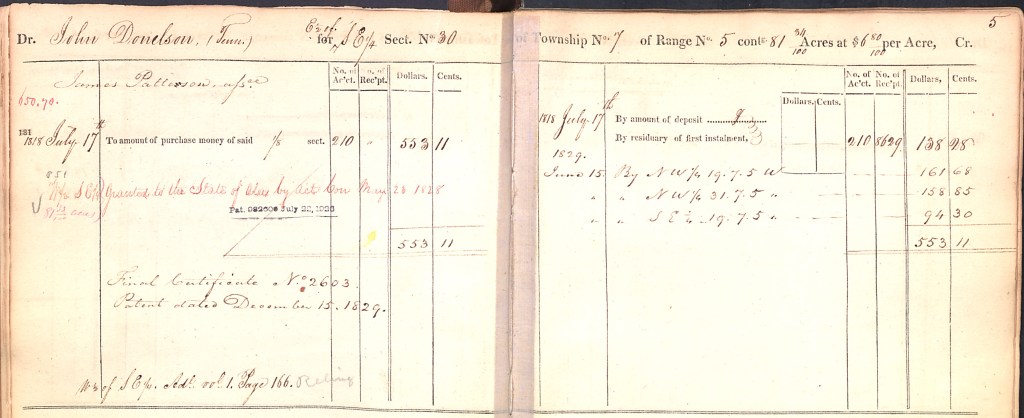 5
Dr. John Donelson, (Tenn.) E½ of for S E ¼ Sect. No. 30
James Patterson, assee
650.70.
No. of Ac'ct. No. of Rec'pt. Dollars. Cents.
1818 July 17th To amount of purchase money of said 1/8 sect. 210 " 553 11
W½ S E ¼ Granted to the State of Alas by act Con May 23 1828
81 34/100 acres
Pat. 982604 July 22, 1926
553 11
Final Certificate No. 2603.
Patent dated December 15. 1829.
W½ of S E ¼. Adl. vol. 1. Page 166.
of Township No. 7 of Range No. 5 conts. 81 34/100 Acres at $6 80/100 per Acre, Cr.
No. of Ac'ct. No. of Rec'pt. Dollars, Cents.
Dollars. Cents.
1818 July 17th By amount of deposit
By residuary of first instalment. 210 8629 138 28
1829.
June 15 By N W ¼ 19. 7. 5 W 161 68
" " N W ¼ 31. 7. 5 " 158 85
" " S E ¼ 19. 7. 5 " 94 30
553 11